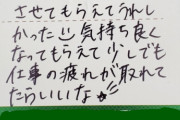 させてもらえてうれし
かった 気持ち良く
なってもらえて少しでも
仕事の疲れが取れて
たらいいな